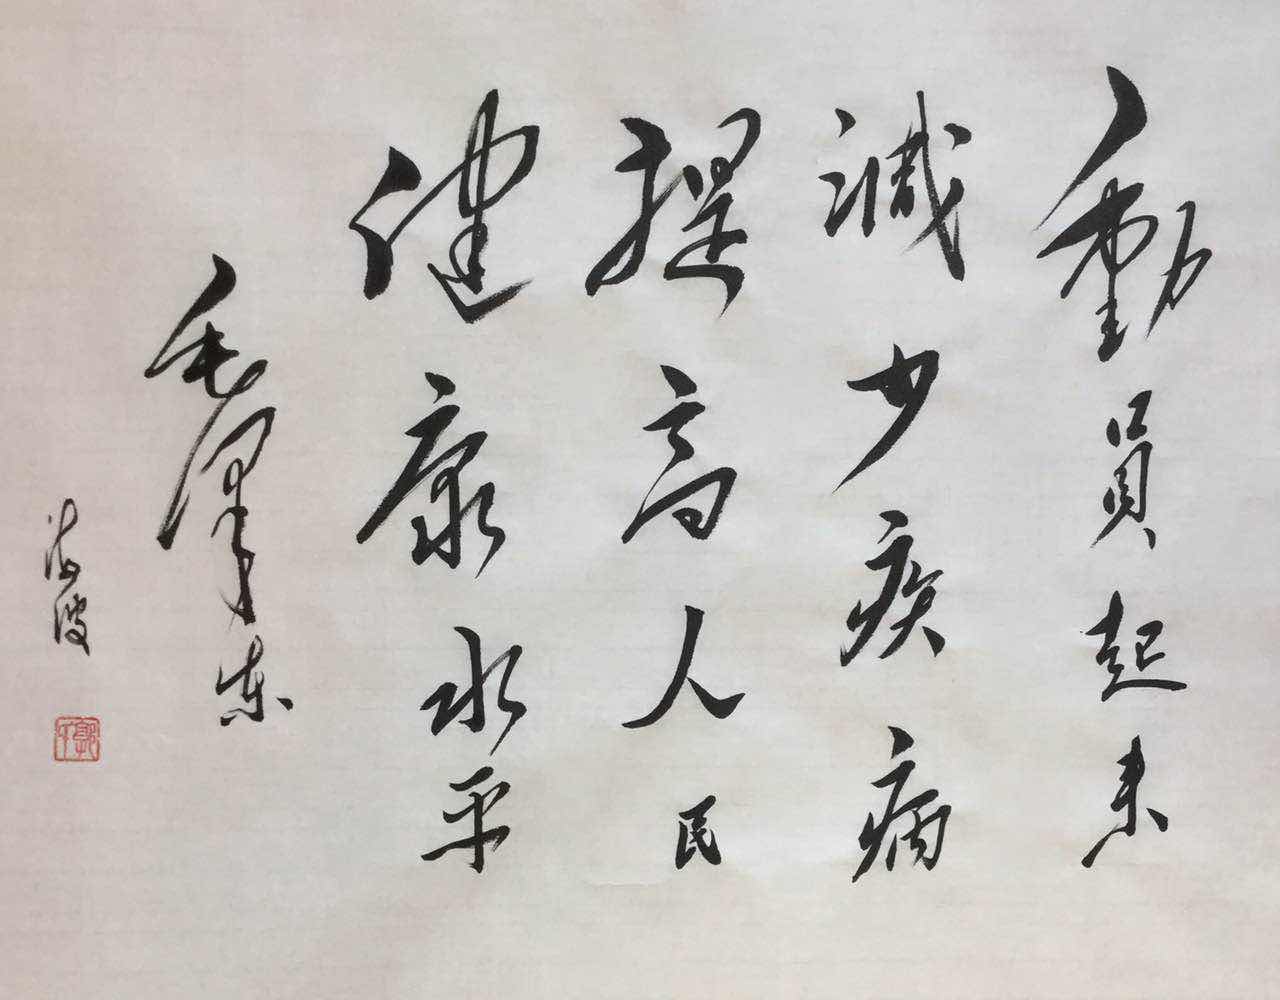 動員起来
減少疾病
提高人民
健康水平
毛澤东
海波